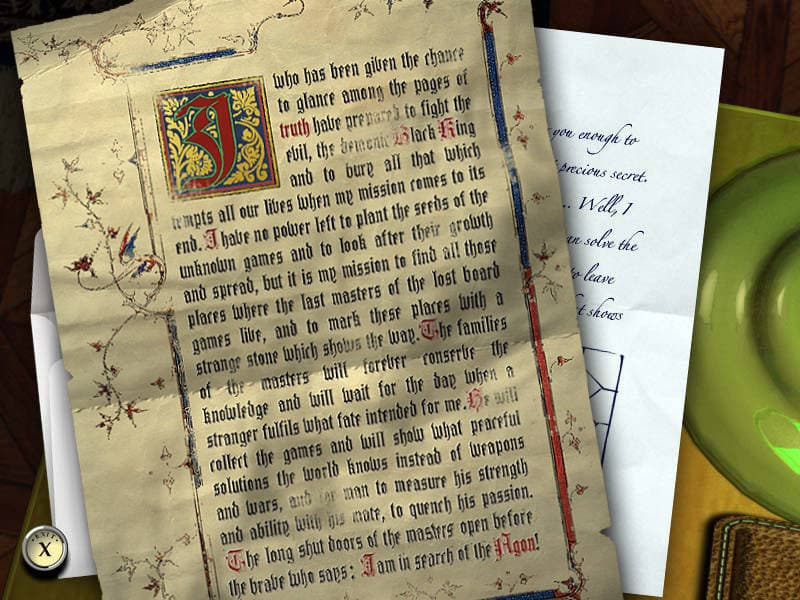 I who has been given the chance
to glance among the pages of
truth have prepared to fight the
evil, the demonic Black King
and to bury all that which
tempts all our lives when my mission comes to its
end. I have no power left to plant the seeds of the
unknown games and to look after their growth
and spread, but it is my mission to find all those
places where the last masters of the lost board
games live, and to mark these places with a
strange stone which shows the way. The families
of the masters will forever conserve the
knowledge and will wait for the day when a
stranger fulfils what fate intended for me. He will
collect the games and will show what peaceful
solutions the world knows instead of weapons
and wars, and for man to measure his strength
and ability with his mate, to quench his passion.
The long shut doors of the masters open before
the brave who says: I am in search of the Agon!
you enough to
precious secret.
... Well, I
can solve the
to leave
shows
EXIT
X